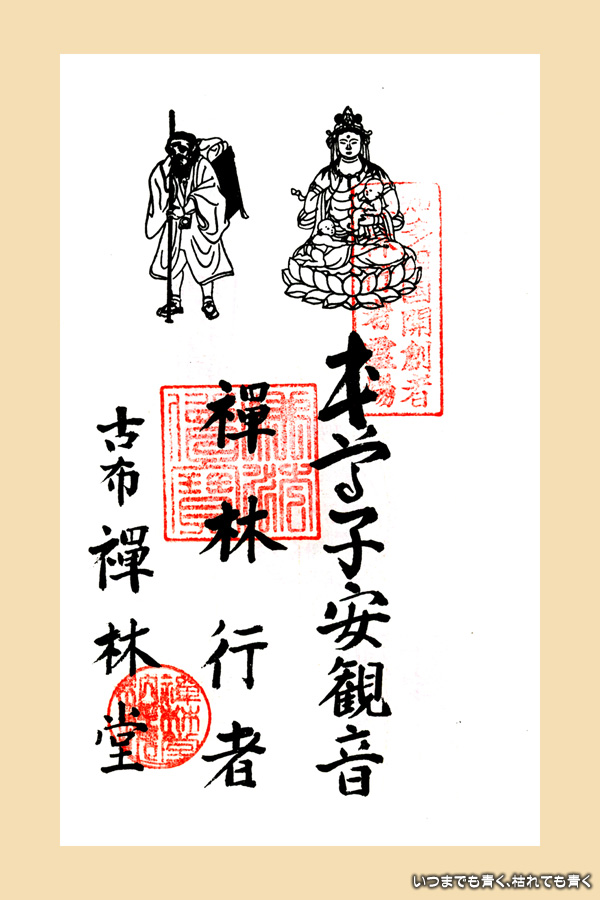 本尊子安観音
禅林行者
古布禅林堂
開創者
霊場
いつまでも青く、枯れても青く